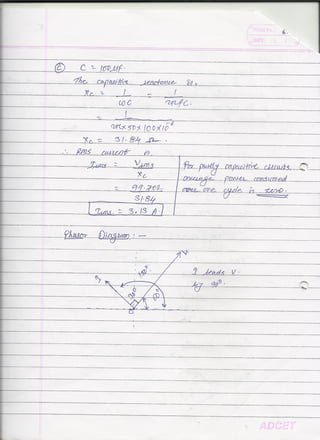 6.
Ⓒ C = 100μF.
The capacitive reactance is,
Xc = 1/ωC = 1/2πfC.
= 1/2π×50×100×10⁻⁶
Xc = 31.84 Ω.
∴ RMS current is.
Irms = Vrms/Xc
= 99.702/31.84
Irms = 3.13 A
For purely capacitive circuits
average power consumed
over one cycle is zero.
Phasor Diagram :-
I leads V.
by 90°.
90°
ADCET